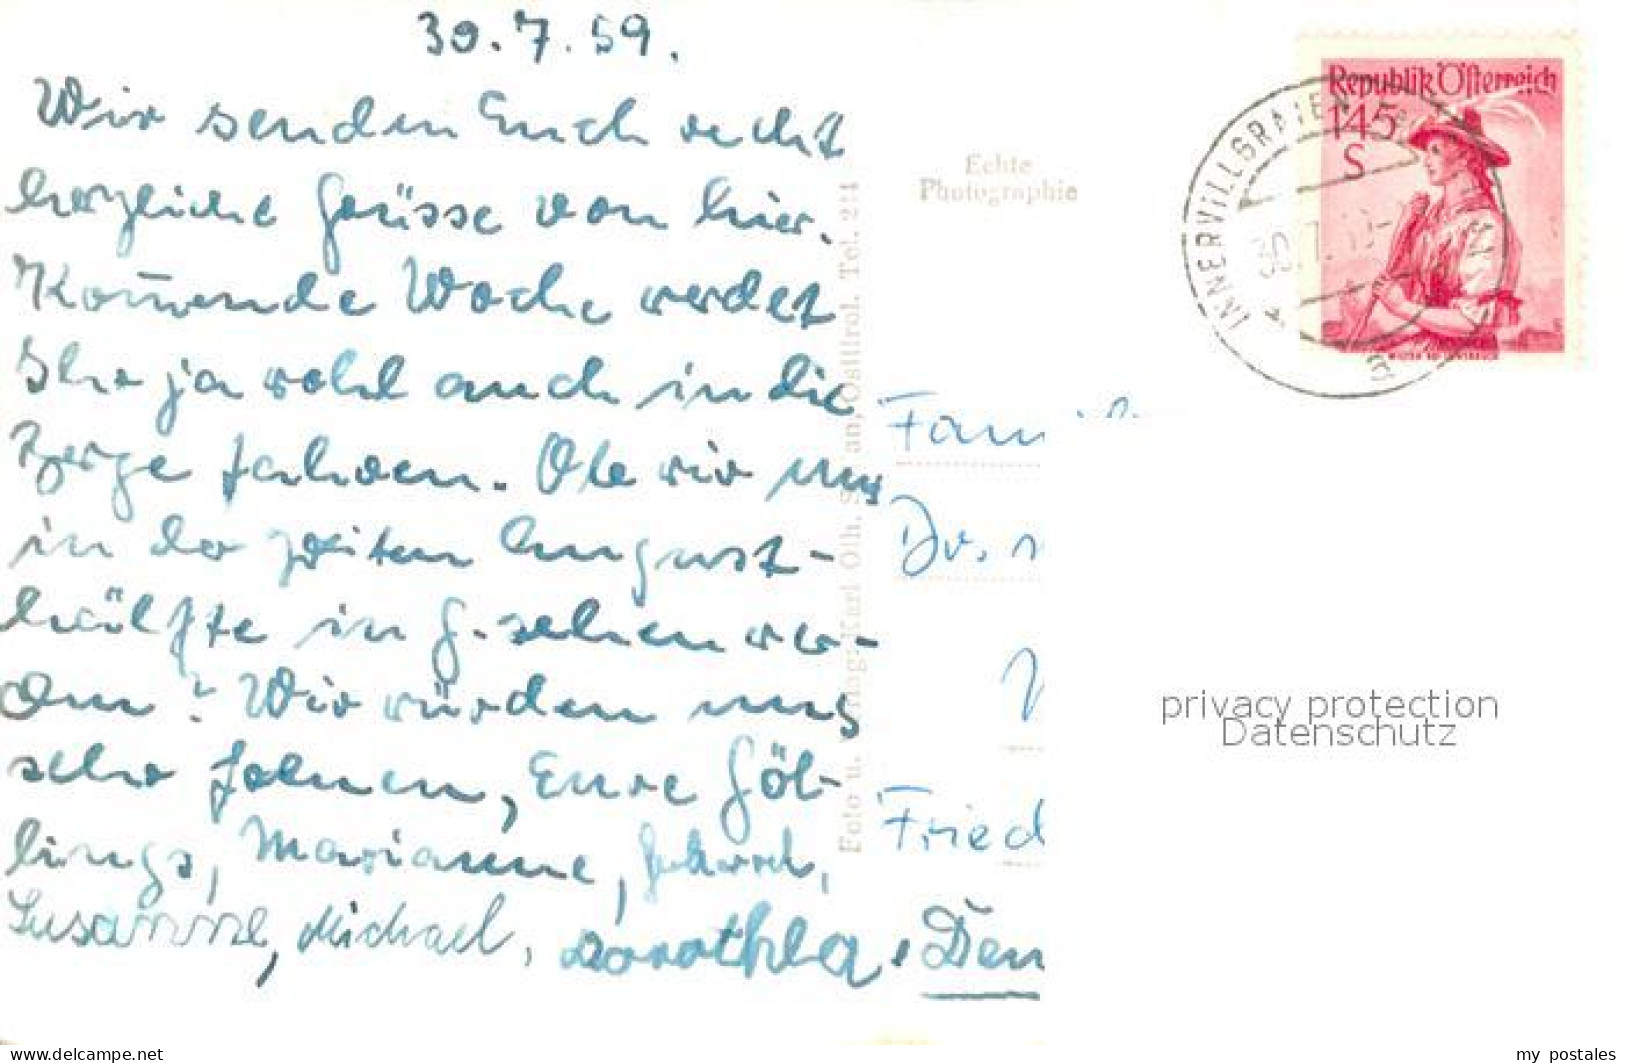 30.7.59.
Wir senden Euch recht
herzliche Grüsse von hier.
Kom̄ende Woche werdet
Ihr ja wohl auch in die
Berge fahren. Ob wir uns
in der zweiten August-
hälfte in G. sehen wer-
den? Wir würden uns
sehr freuen, Eure Göt-
lings, Marianne, Gerhard,
Susanne, Michael, Dorothea.
Foto u. Verlag: Karl Oth. anj Osttirol. Tel. 214
Echte
Photographie
Republik Österreich
145
S
INNERVILLGRATEN
30.7.
Fam
Dr.
Fried
Den
privacy protection
Datenschutz
www.delcampe.net
my_postales